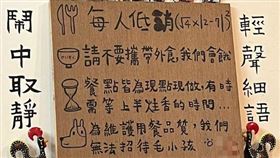 鬧中取靜
每人低消
請不要攜帶外食,我們會餓
餐點皆為現點現做,有時
需等上半炷香的時間...
為維護用餐品質,我們
無法招待毛小孩
輕聲細語